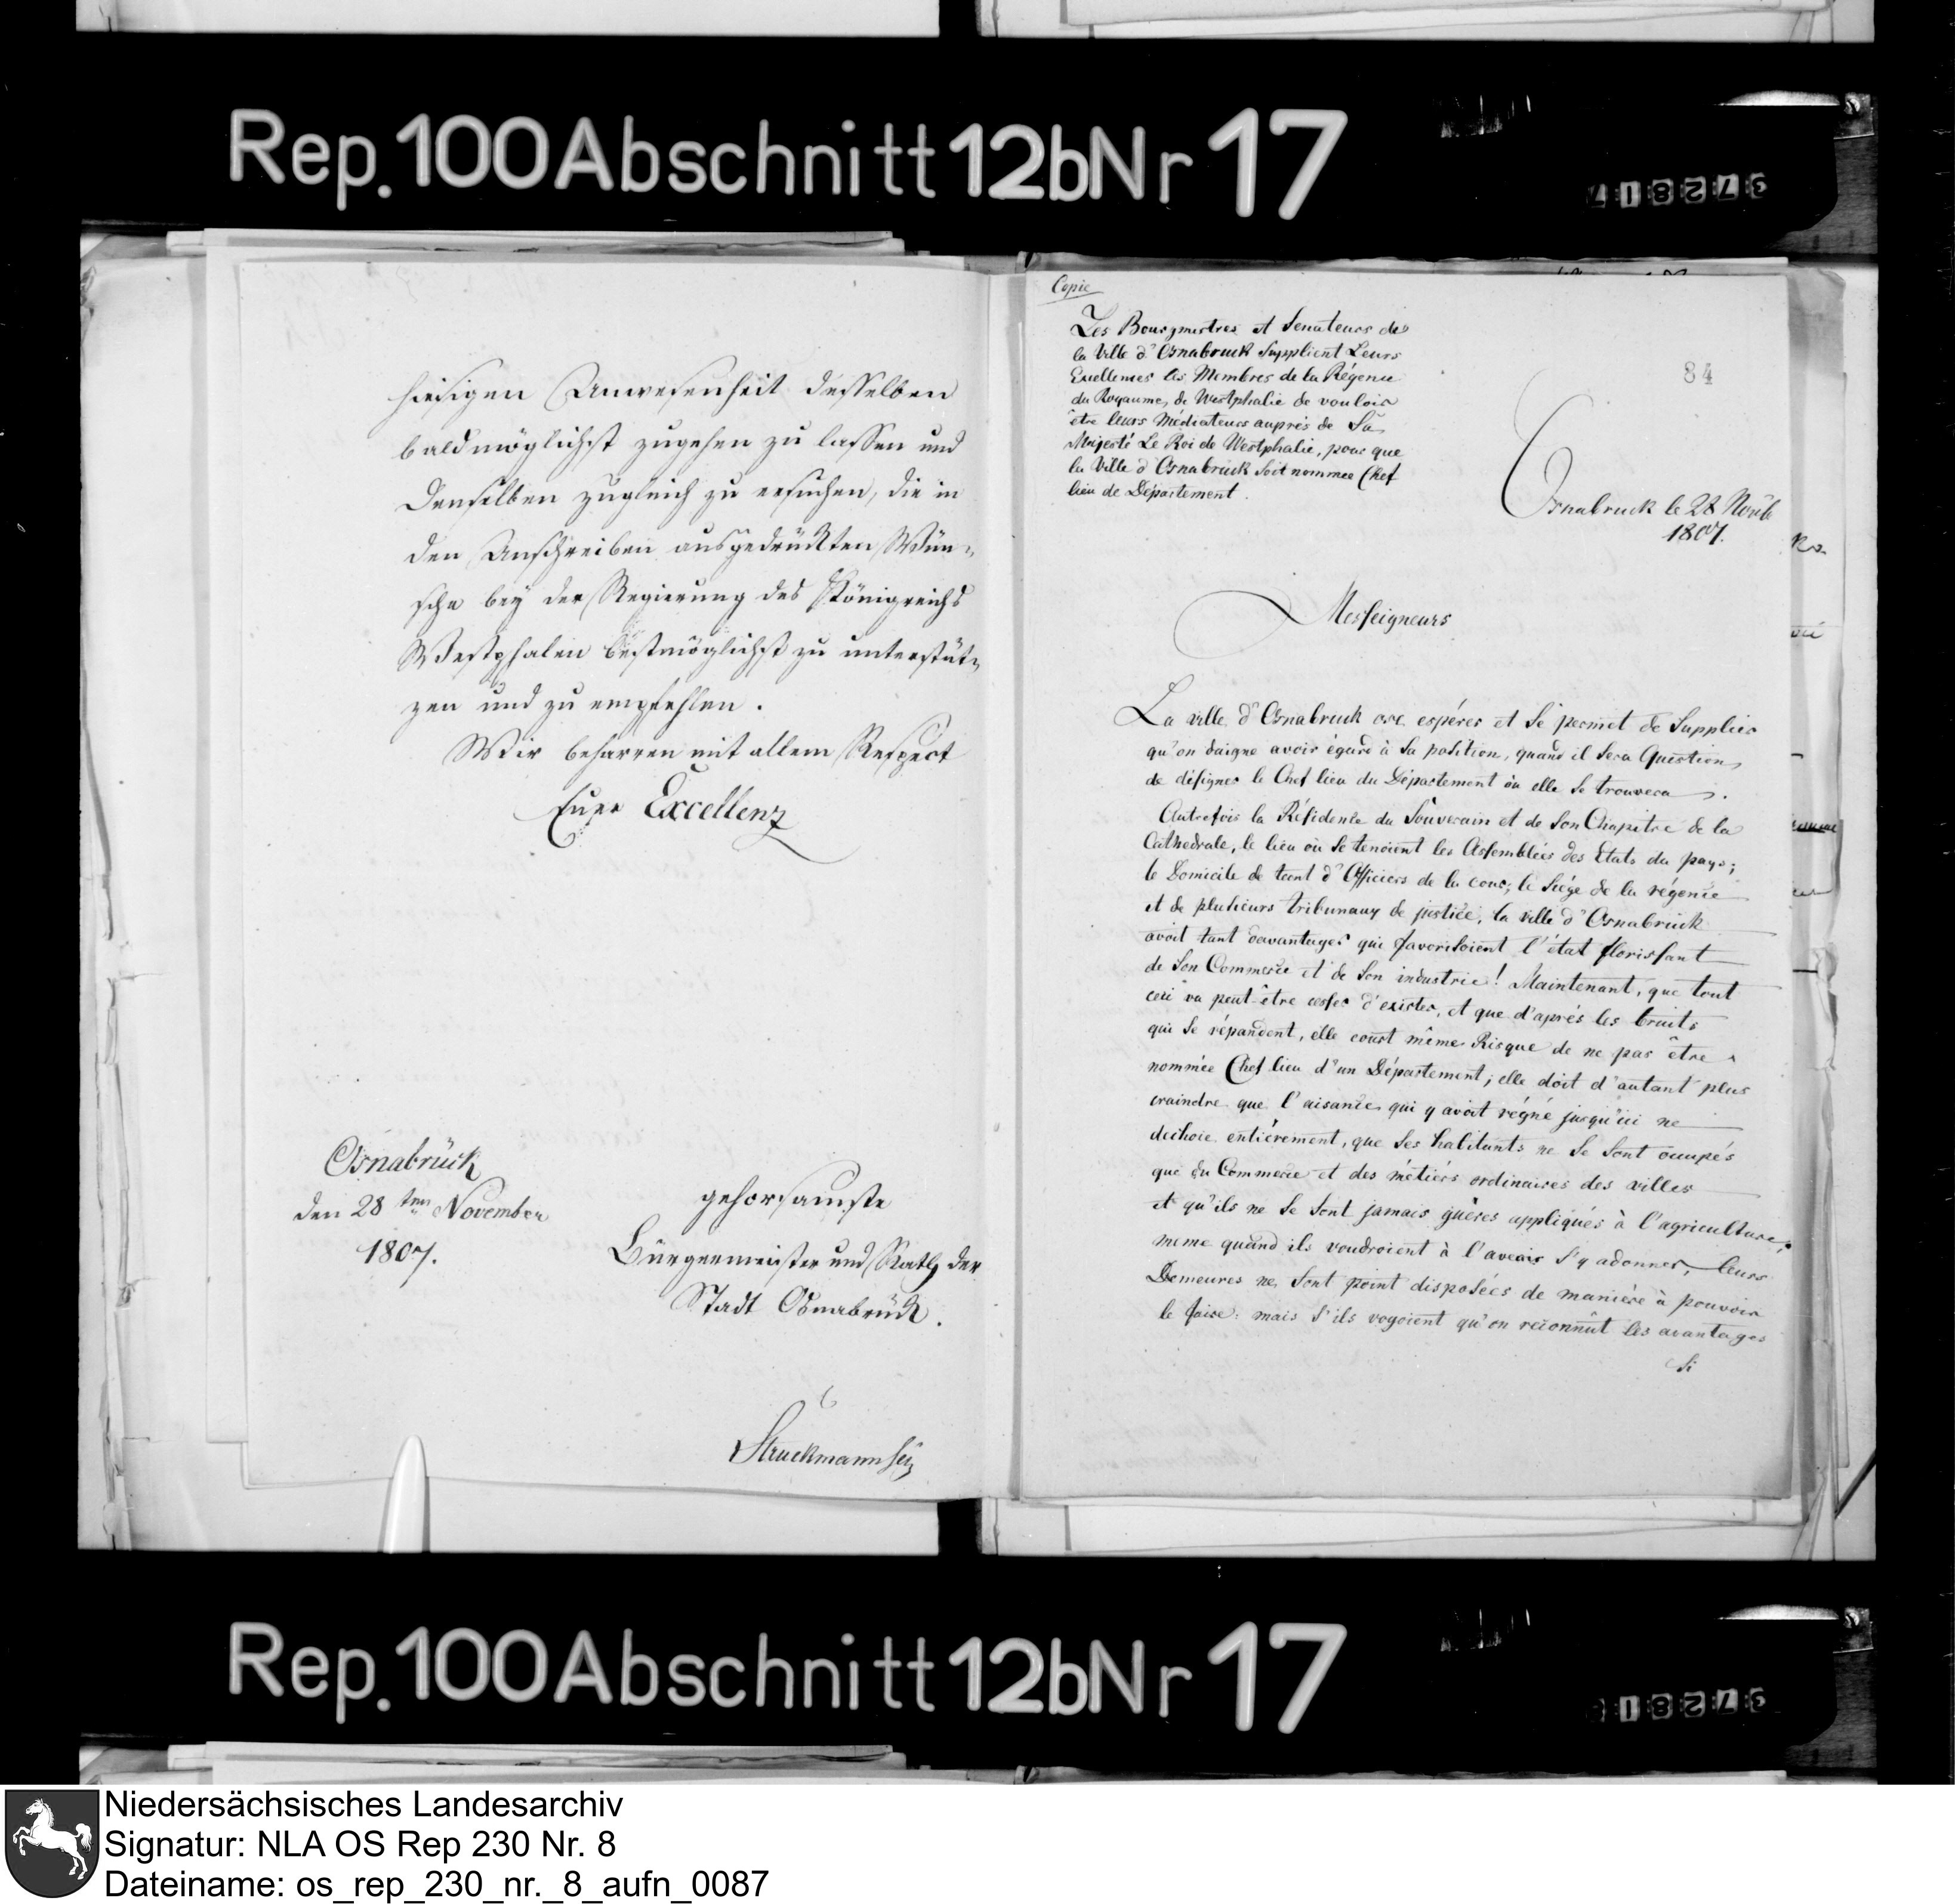 Rep. 100 Abschnitt 12b Nr 17
372817
hiesigen Anwesenheit desselben
baldmöglichst zugehen zu lassen und
denselben zugleich zu ersuchen, die in
den Anschreiben ausgedrückten Wün-
sche bey der Regierung des Königreichs
Westphalen bestmöglichst zu unterstüt-
zen und zu empfehlen.
Wir beharren mit allem Respect
Euer Excellenz
Osnabrück
den 28ten November
1807.
gehorsamste
Bürgermeister und Rath der
Stadt Osnabrück.
Struckmann
Copie
Les Bourgmestres et Senateurs de
la Ville d'Osnabruck Supplient Leurs
Excellences les Membres de la Régence
du Royaume de Westphalie de vouloir
être leurs Médiateurs auprès de Sa
Majesté Le Roi de Westphalie, pour que
la Ville d'Osnabrück soit nommée Chef
lieu de Département.
84
Osnabruck le 28 Novb
1807.
Messeigneurs
La ville d'Osnabruck ose espérer et se permet de Supplier
qu'on daigne avoir égard à sa position, quand il sera Question
de désigner le Chef lieu du Département où elle se trouvera.
Autrefois la Résidence du Souverain et de son Chapitre de la
Cathedrale, le lieu où se tenoient les Assemblées des Etats du pays;
le Domicile de tant d'Officiers de la cour; le Siége de la régence
et de plusieurs tribunaux de justice, la ville d'Osnabrück
avoit tant davantages qui favorisoient l'état florissant
de son Commerce et de son industrie! Maintenant, que tout
ceci va peut-être cesser d'exister, et que d'après les bruits
qui se répandent, elle court même Risque de ne pas être
nommée Chef lieu d'un Département; elle doit d'autant plus
craindre que l'aisance qui y avoit régné jusqu'ici ne
dechoie entiérement, que ses habitants ne se sont occupés
que du Commerce et des métiers ordinaires des villes
et qu'ils ne se sont jamais guères appliqués à l'agriculture,
meme quand ils voudroient à l'avenir s'y adonner, leurs
Demeures ne sont point disposées de manière à pouvoir
le faire: mais s'ils voyoient qu'on reconnût les avantages
si
Rep. 100 Abschnitt 12b Nr 17
Niedersächsisches Landesarchiv
Signatur: NLA OS Rep 230 Nr. 8
Dateiname: os_rep_230_nr._8_aufn_0087